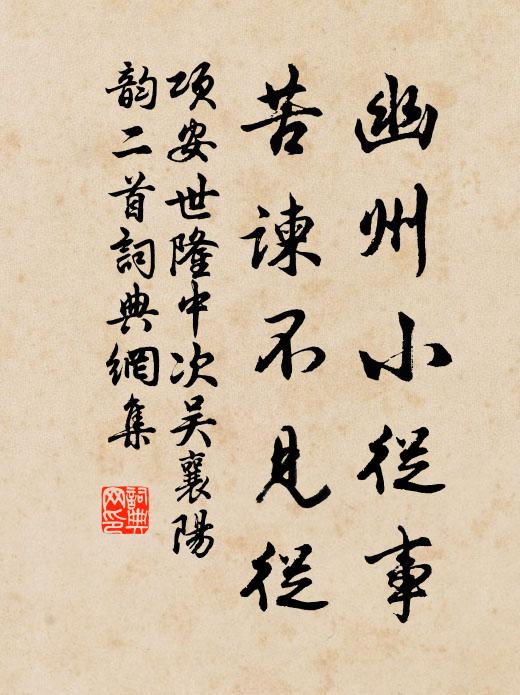 幽州小從事
苦諫不見從
項安世隆中次吴襄陽
韵二首詞典網集
詞典
网印